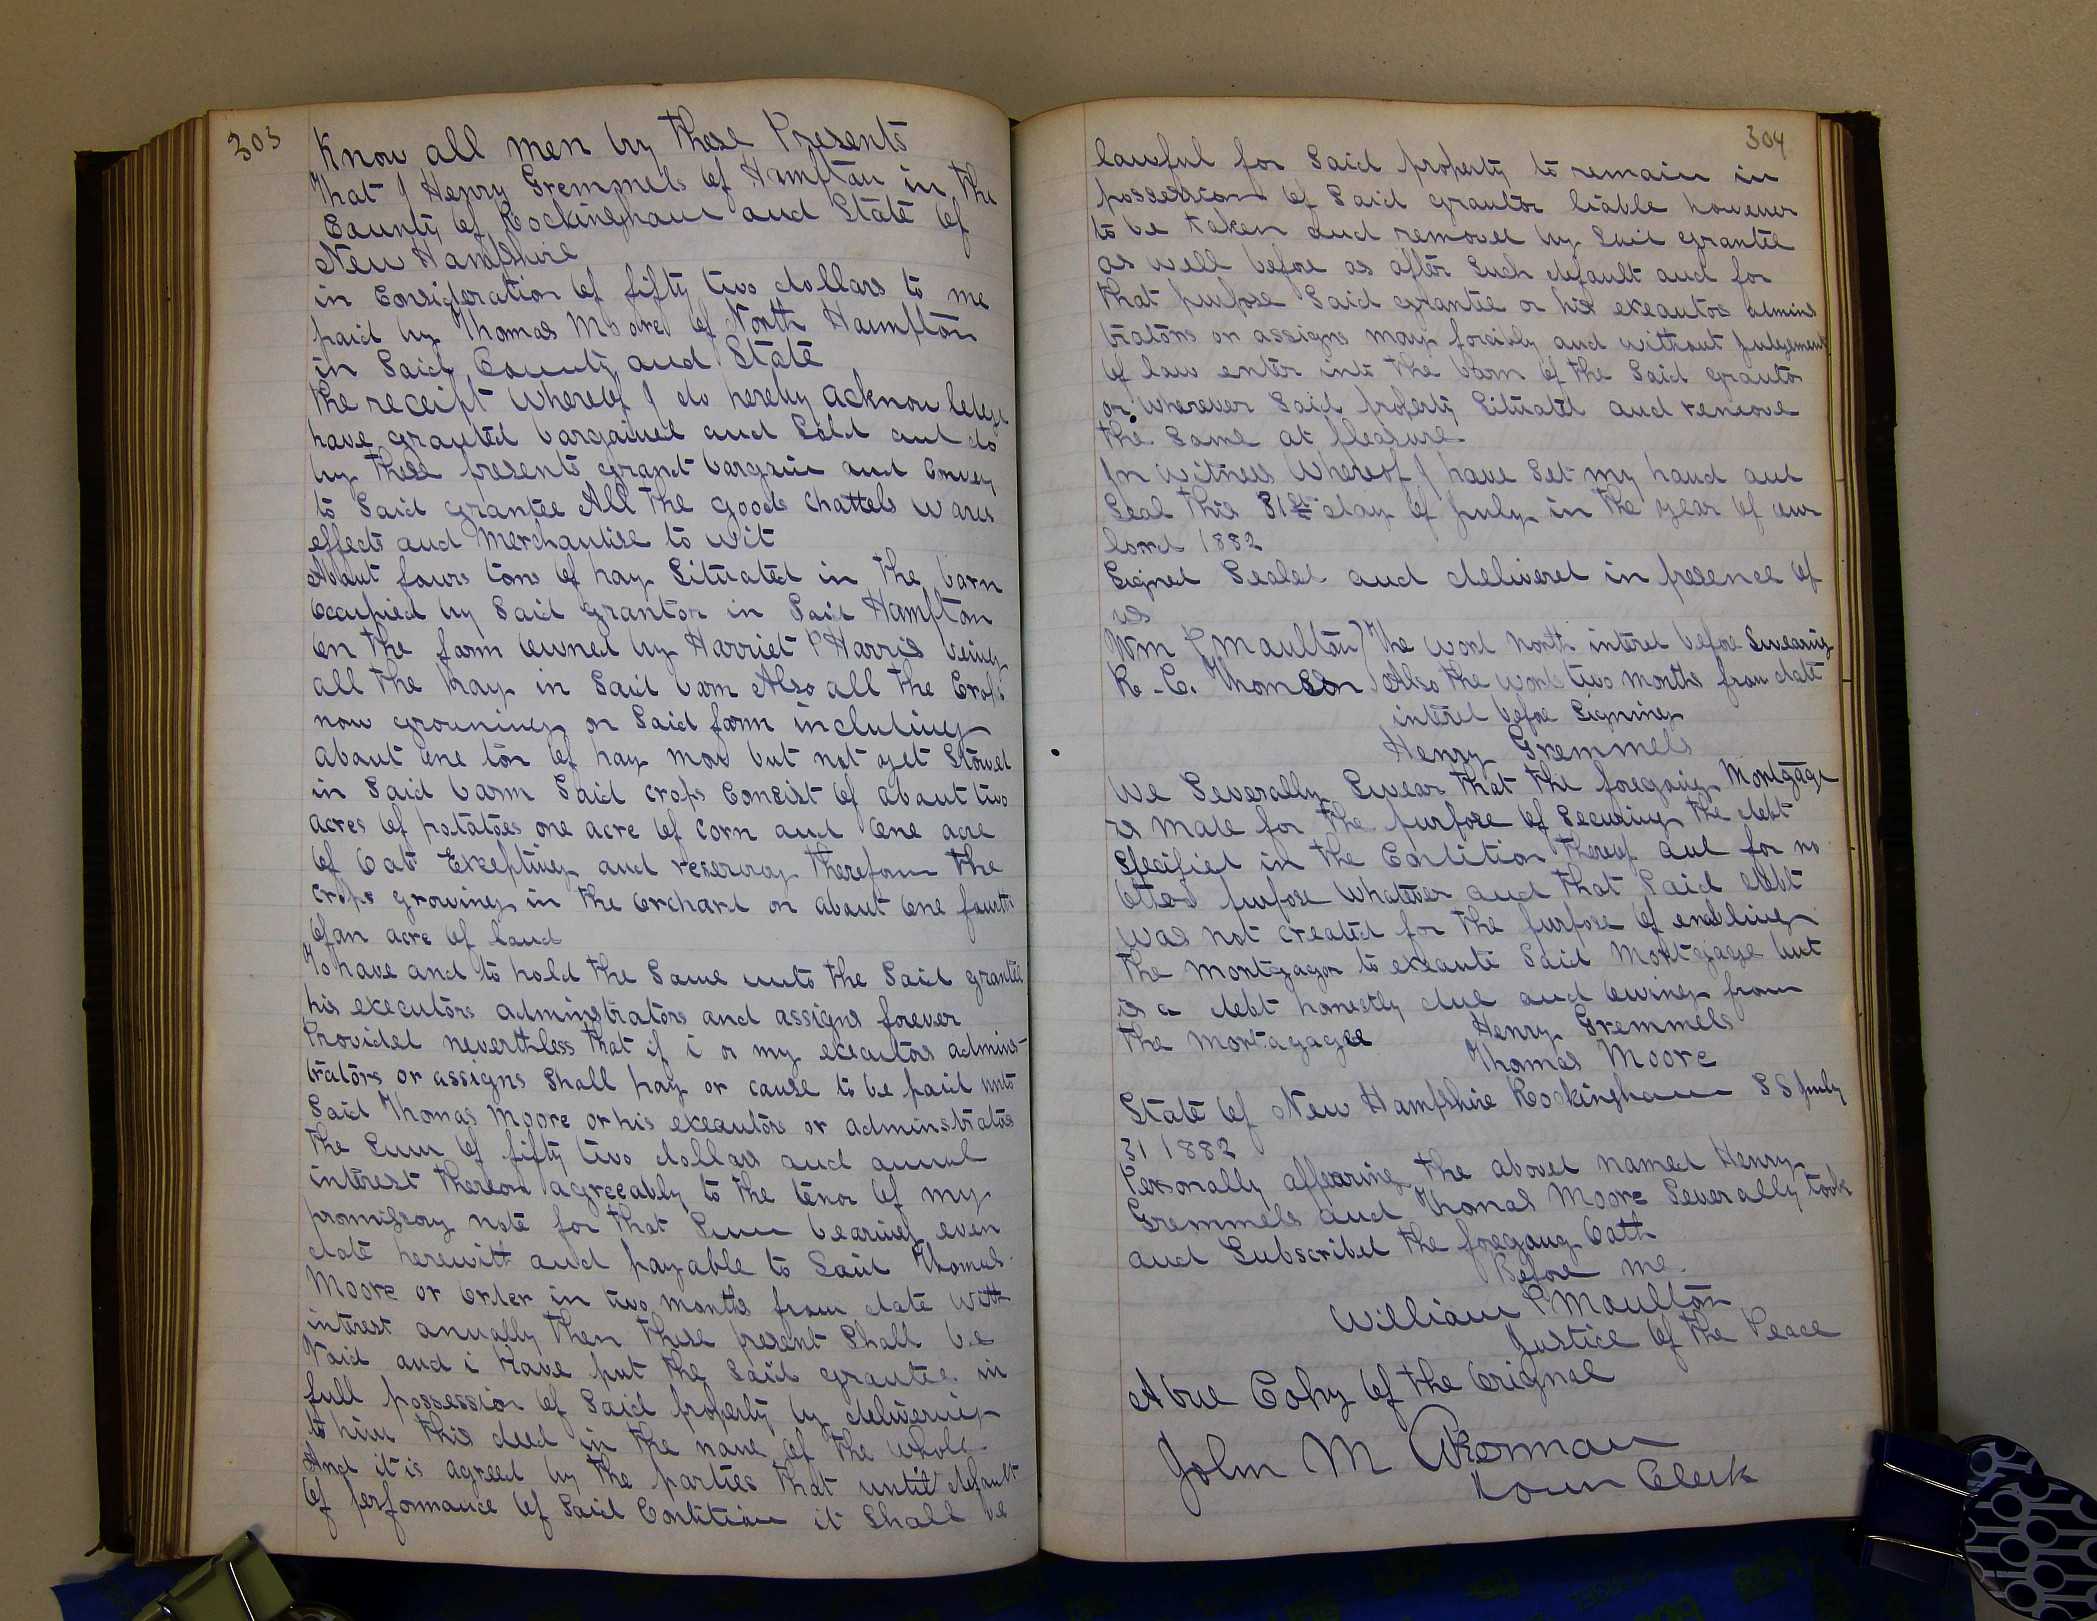 303
Know all men by these Presents
That I Henry Gremmels of Hampton in the
County of Rockingham and State of
New Hampshire
in Consideration of fifty two dollars to me
paid by Thomas Moore of North Hampton
in Said County and State
the receipt Whereof I do hereby acknowledge
have granted bargained and Sold and do
by these presents grant bargain and Convey
to Said grantee All the goods chattels wares
effects and Merchantise to wit
About fours tons of hay Situated in the barn
Occupied by Said Grantor in Said Hampton
On the farm Owned by Harriet P Harris being
all the hay in Said barn Also all the Crops
now growning on Said farm including
about One ton of hay mow but not yet Stowed
in Said barn Said crops Consist of about two
acres of potatoes one acre of corn and One acre
of Oats Excepting and reserving therefrom the
crops growing in the Orchard on about One fourth
Of an acre of land
To have and to hold the Same unto the Said grantee
his executors adminstrators and assigns forever
Provided nevertheless that if i or my executors adminis-
trators or assigns Shall pay or cause to be paid unto
Said Thomas Moore or his executors or adminstrators
the Sum of fifty two dollars and anual
interest thereon agreeably to the tenor of my
promissory note for that Sum bearing even
date herewith and payable to Said Thomas
Moore or Order in two months from date With
interest anually then these present Shall be
Void and i have put the Said grantee in
full possession of Said property by delivering
to him this deed in the name of the whole
And it is agreed by the parties that until default
Of performance of Said Condition it Shall be
304
lawful for Said property to remain in
possession of Said grantor liable however
to be taken and removed by Said grantee
as well before as after Such default and for
that purpose Said grantee or his executors adminis
trators or assigns may forcibly and without judgement
Of law enter into the barn of the Said grantor
or wherever Said property Situated and remove
the Same at pleasure
In Witness Whereof I have Set my hand and
Seal this 31st day of July in the year of our
lord 1882
Signed Sealed and delivered in presence of
us
Wm P Moulton) The word North intered before Swearing
R. C. Thomson ) Also the words two months from date
intered before Signing
Henry Gremmels
We Severally Swear that the foregoing Mortgage
is made for the purpose of Securing the debt
Specified in the Condition thereof and for no
Other purpose Whatever and that Said debt
was not created for the purpose of enabling
the Mortgagor to execute Said Mortgage but
is a debt honestly due and Owing from
the mortagagee Henry Gremmels
Thomas Moore
State of New Hampshire Rockingham SS July
31 1882
Personally appearing the aboved named Henry
Gremmels and Thomas Moore Severally took
and Subscribed the foregoing Oath
Before me.
William P Moulton
Justice Of the Peace
A true Copy Of the Orignal
John M Akerman
Town Clerk